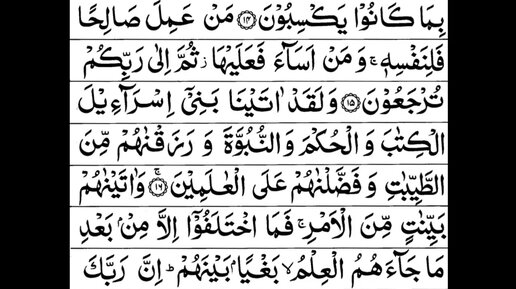 بِمَا كَانُوۡا يَكۡسِبُوۡنَ ۝١٤ مَنۡ عَمِلَ صَالِحًا
فَلِنَفۡسِهٖ ۚ وَ مَنۡ اَسَآءَ فَعَلَيۡهَا ؗ ثُمَّ اِلٰى رَبِّكُمۡ
تُرۡجَعُوۡنَ ۝١٥ وَ لَقَدۡ اٰتَيۡنَا بَنِىۡۤ اِسۡرَآءِيۡلَ
الۡكِتٰبَ وَ الۡحُكۡمَ وَ النُّبُوَّةَ وَ رَزَقۡنٰهُمۡ مِّنَ
الطَّيِّبٰتِ وَ فَضَّلۡنٰهُمۡ عَلَى الۡعٰلَمِيۡنَ ۚ ۝١٦ وَ اٰتَيۡنٰهُمۡ
بَيِّنٰتٍ مِّنَ الۡاَمۡرِ ۚ فَمَا اخۡتَلَفُوۡۤا اِلَّا مِنۡۢ بَعۡدِ
مَا جَآءَهُمُ الۡعِلۡمُ ۙ بَغۡيًاۢ بَيۡنَهُمۡ ؕ اِنَّ رَبَّكَ